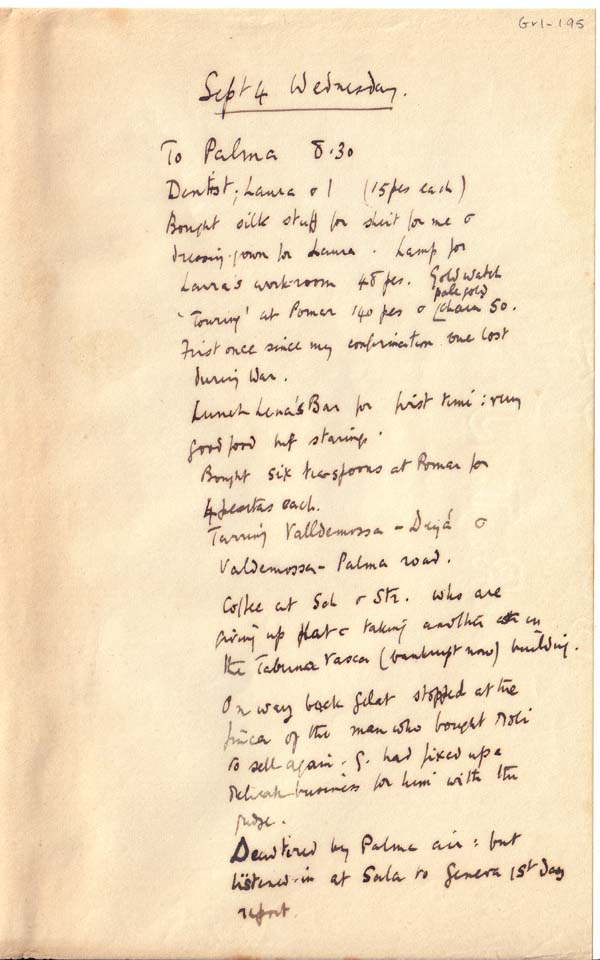 Gr1-195
Sept 4 Wednesday.
To Palma 8.30
Dentist; Laura & I (15 pes each)
Bought silk stuff for shirt for me &
dressing-gown for Laura. Lamp for
Laura's work-room 48 pes. Gold watch
pale gold
'Touring' at Pomar 140 pes & chain 50.
First once since my confirmation one lost
during War.
Lunch Lena's Bar for first time: very
good food but starings.
Bought six tea-spoons at Pomar for
4 pesetas each.
Tarring Valldemossa - Deyá &
Valdemossa - Palma road.
Coffee at Sch & Str. who are
giving up flat & taking another in
the Taberna Vasca (bankrupt now) building.
On way back Gelat stopped at the
finca of the man who bought Molí
to sell again. G. had fixed up a
delicate business for him with the
judge.
Dead tired by Palma air: but
listened-in at Sala to Geneva 1st Day
report.